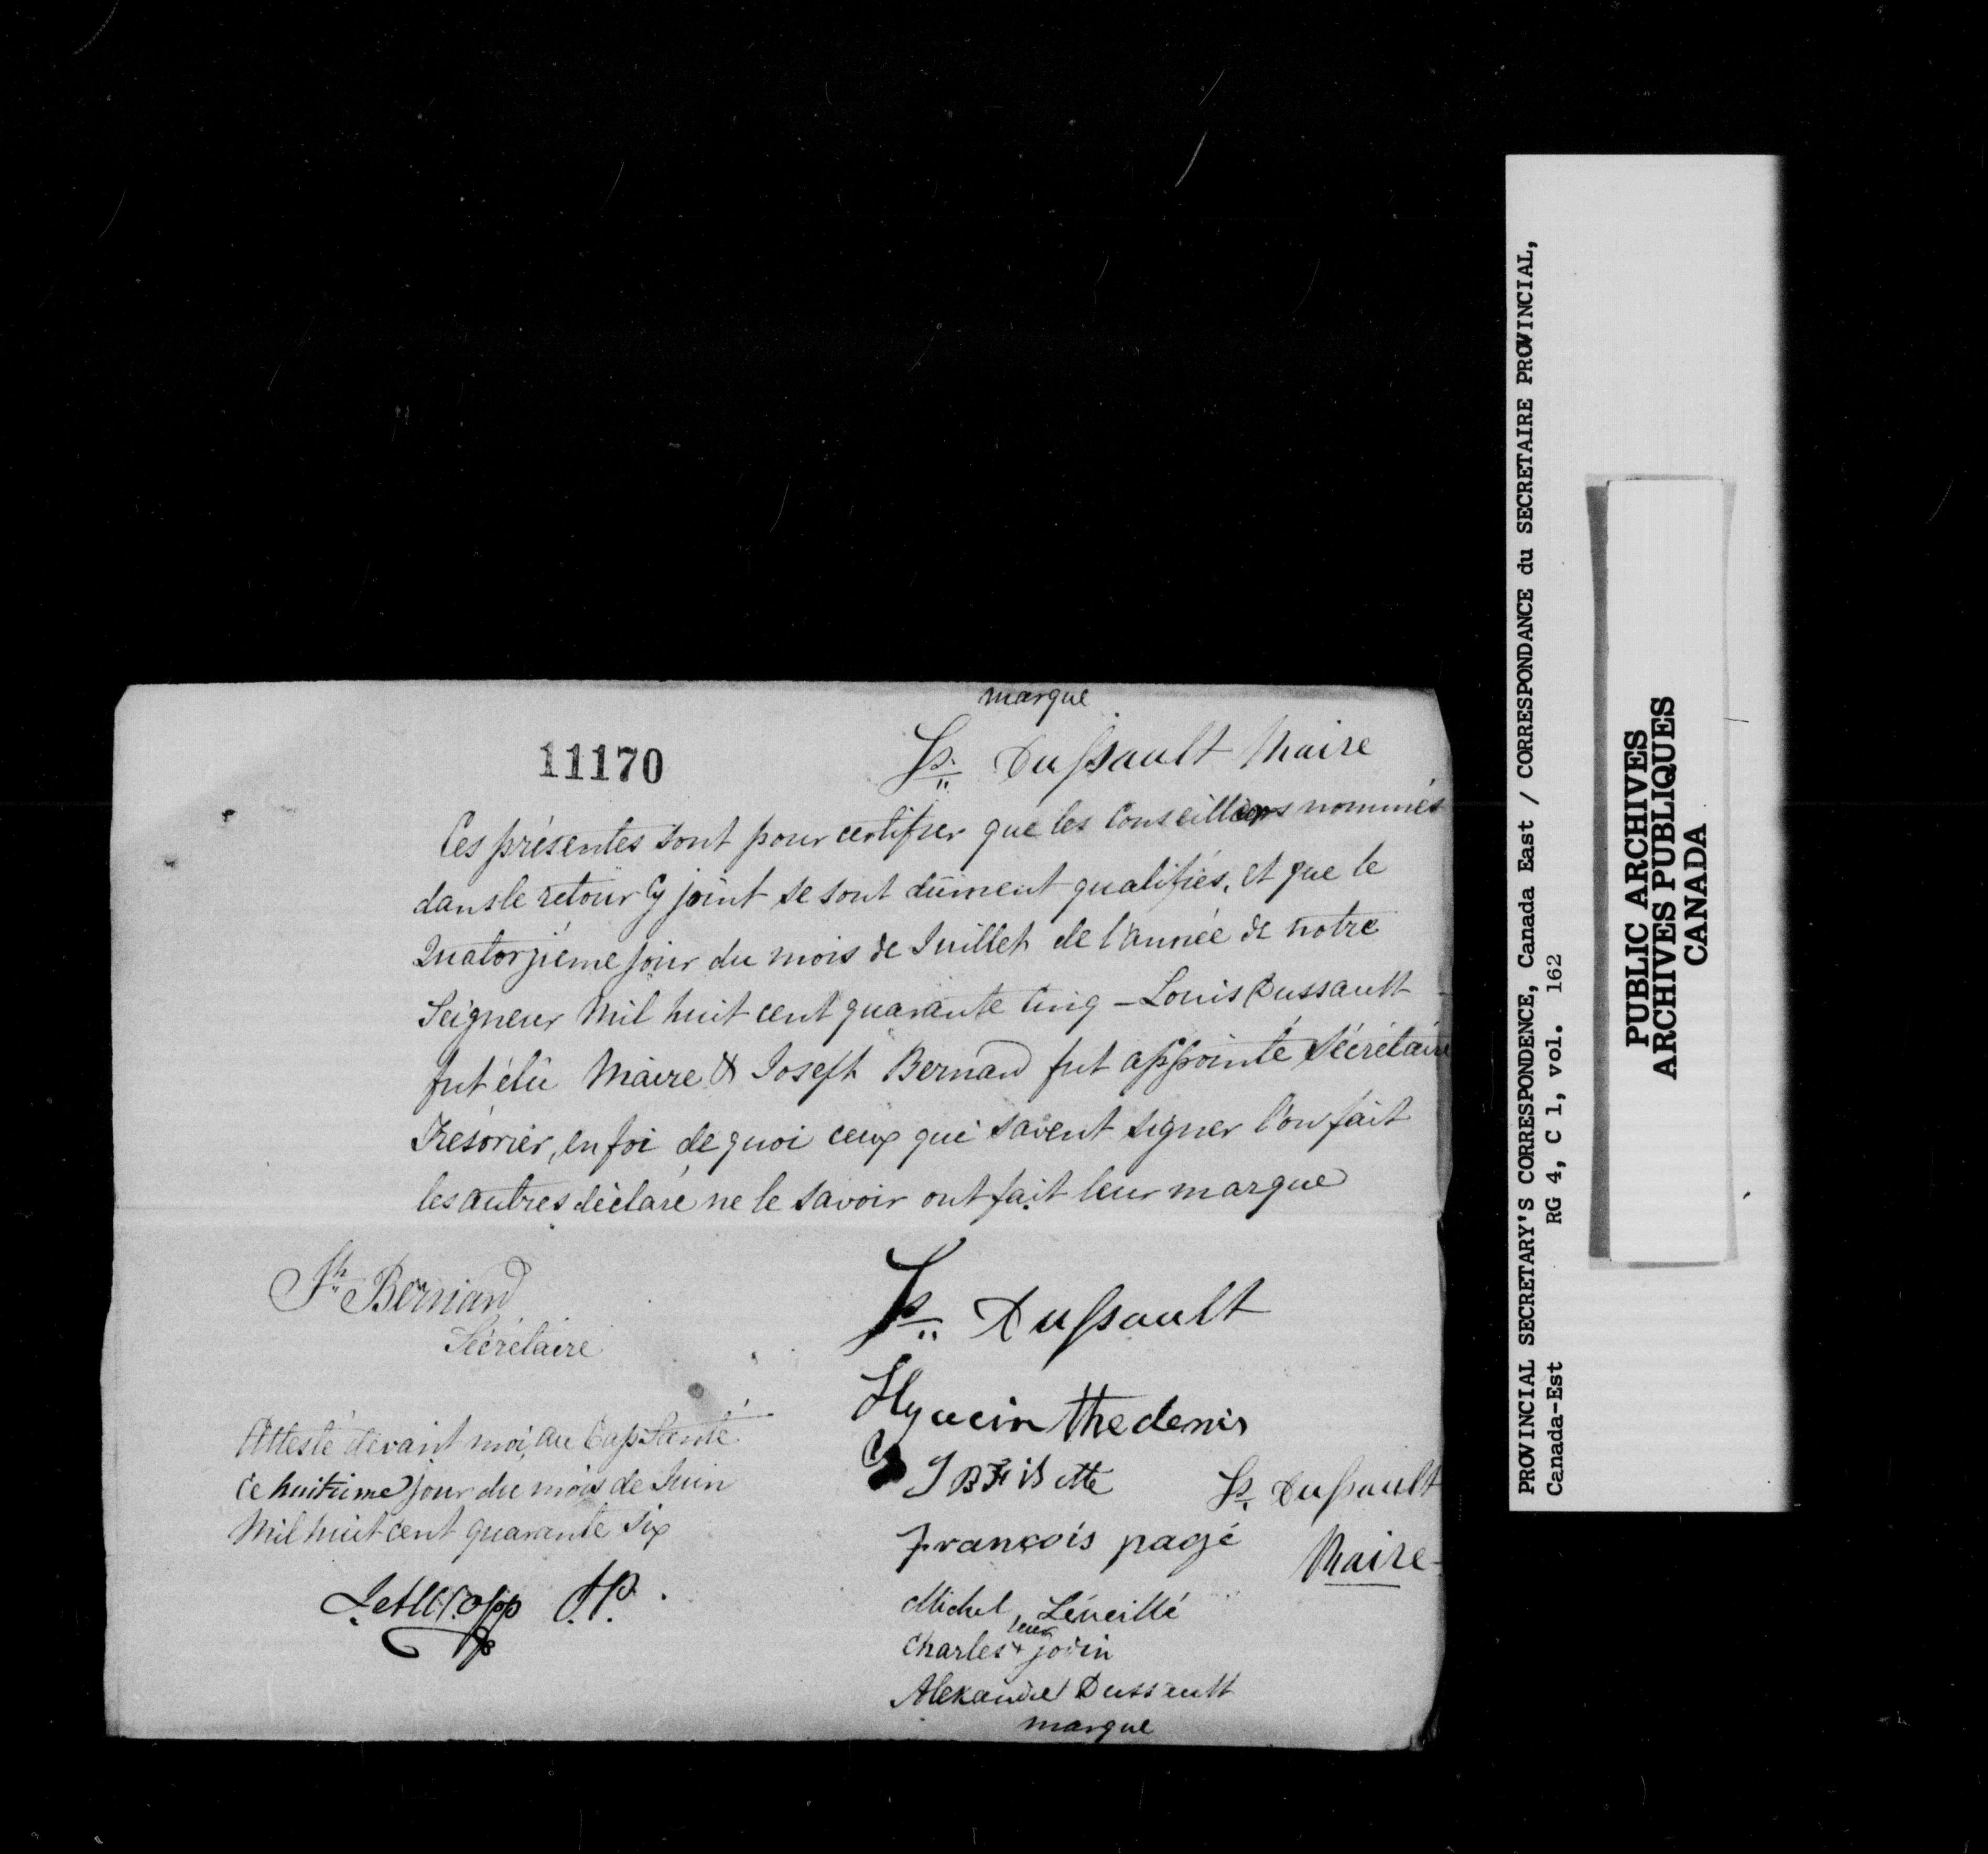 marque
11170
Ls. Dussault Maire
Ces présentes sont pour certifier que les Conseillers nommés
dans le retour Cy joint se sont dûment qualifiés, et que le
Quatorzième jour du mois de Juillet de l'année de notre
Seigneur Mil huit cent quarante Cinq - Louis Dussault
fut élû Maire & Joseph Bernard fut appointé Sécrétaire
Trésorier, en foi de quoi ceux qui savent signer l'on fait
les autres déclaré ne le savoir ont fait leur marque
Jh Bernard
Sécrétaire
Ls. Dussault
Hyacin thedenis
Attesté devant moi, au Cap Santé
ce huitieme jour du mois de Juin
Mil huit cent quarante Six
J.P.
Ls. Dussault
Maire
François pagé
Michel Léveillé
leur
Charles + jodin
Alexandre Dussault
marque
PROVINCIAL SECRETARY'S CORRESPONDENCE, Canada East / CORRESPONDANCE du SECRETAIRE PROVINCIAL,
Canada-Est RG 4, C 1, vol. 162
PUBLIC ARCHIVES
ARCHIVES PUBLIQUES
CANADA